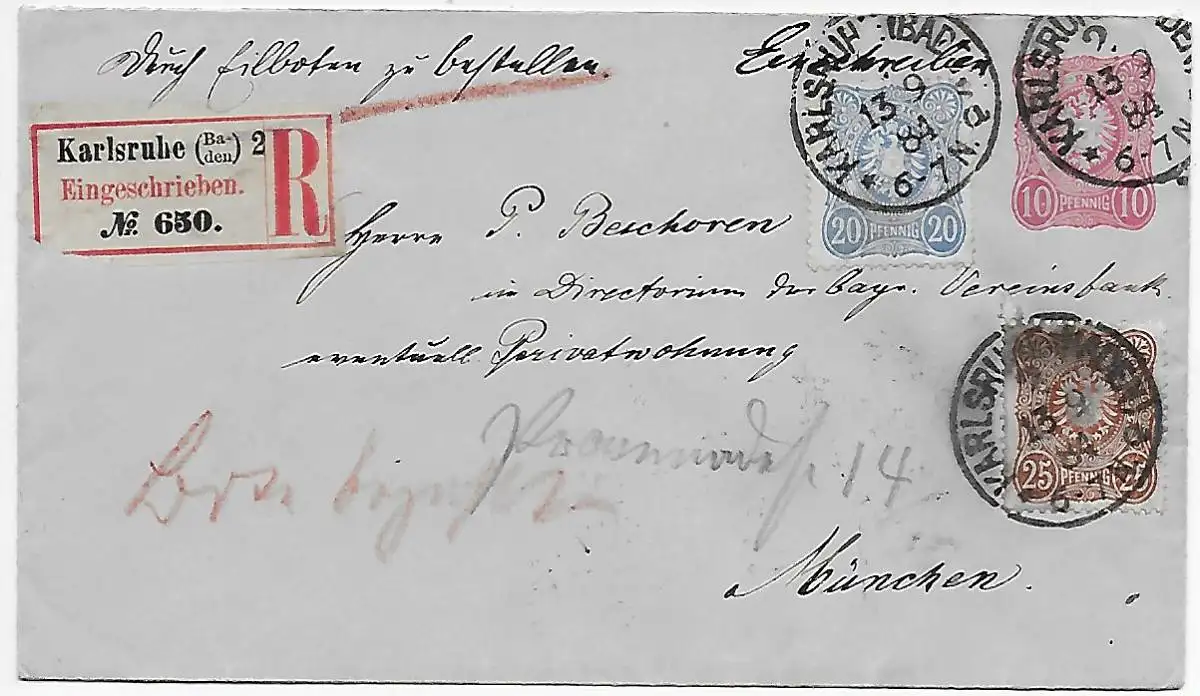 Durch Eilboten zu bestellen.
Einschreiben
Karlsruhe (Ba-den) 2
Eingeschrieben.
№ 650.
R
KARLSRUHE (BADEN) 2 a
13 9
84
* 6-7 N.
20 PFENNIG 20
KARLSRUHE (BADEN)
2.
13 9
84
* 6-7 N.
10 PFENNIG 10
Herrn P. Beschoren
im Directorium der bayr. Vereinsbank
eventuell Privatwohnung
KARLSRUHE (BADEN)
13 9
84
25 PFENNIG 25
Bote bezahlt
14
München.